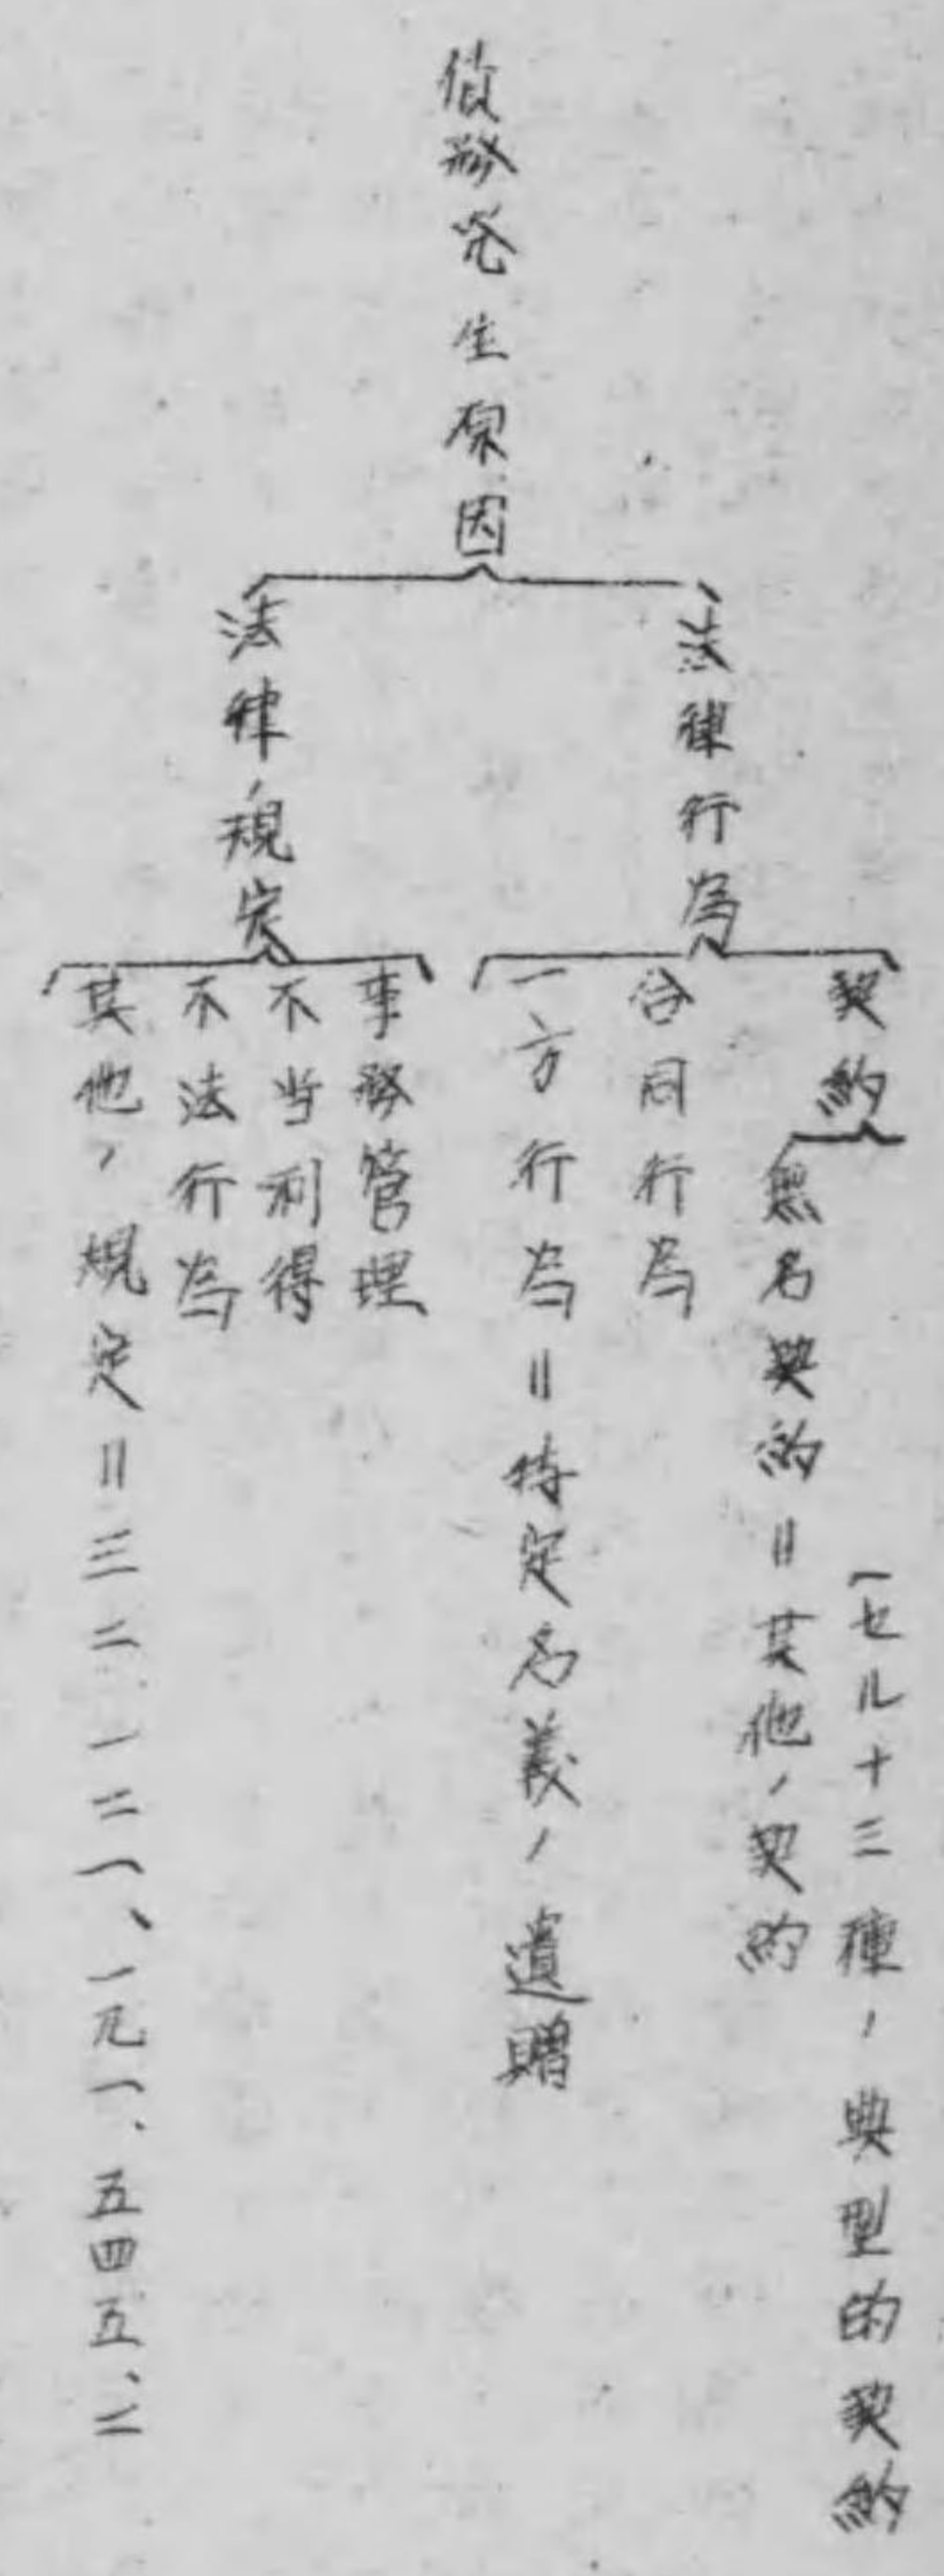 債務発生原因
法律行為
契約
セル十三種ノ典型的契約
無名契約=其他ノ契約
合同行為
一方行為=特定名義ノ遺贈
法律ノ規定
事務管理
不当利得
不法行為
其他ノ規定=三二一二一、一九一、五四五、二